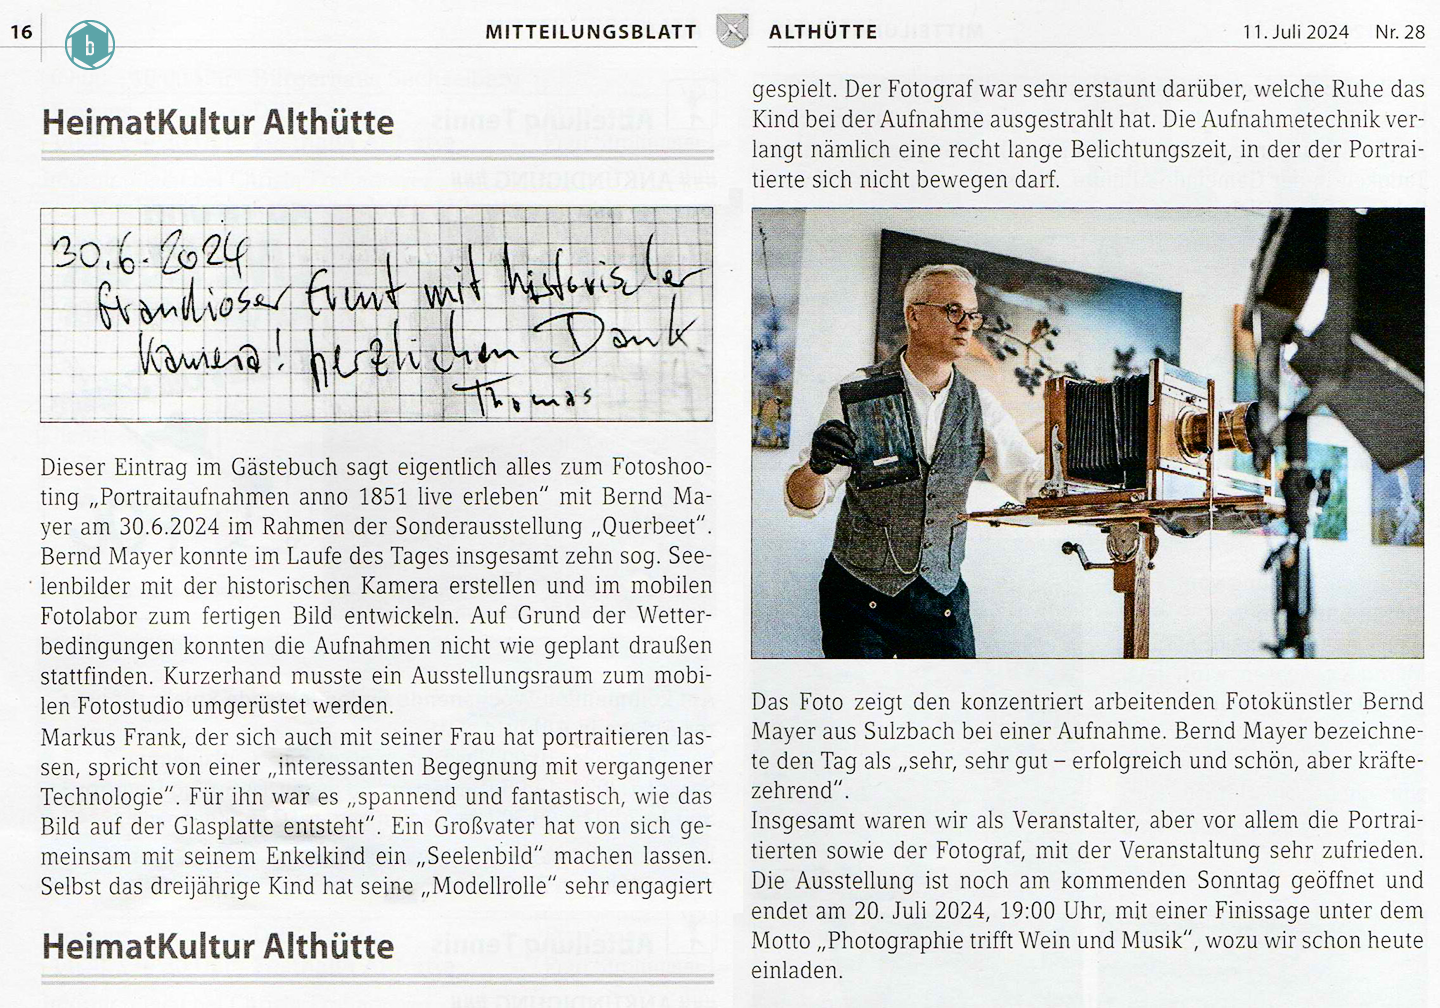 16
b
MITTEILUNGSBLATT ALTHÜTTE
11. Juli 2024 Nr. 28
HeimatKultur Althütte
30.6.2024
Grandioser Event mit historischer
Kamera! herzlichen Dank
Thomas
Dieser Eintrag im Gästebuch sagt eigentlich alles zum Fotoshoo-
ting „Portraitaufnahmen anno 1851 live erleben“ mit Bernd Ma-
yer am 30.6.2024 im Rahmen der Sonderausstellung „Querbeet“.
Bernd Mayer konnte im Laufe des Tages insgesamt zehn sog. See-
lenbilder mit der historischen Kamera erstellen und im mobilen
Fotolabor zum fertigen Bild entwickeln. Auf Grund der Wetter-
bedingungen konnten die Aufnahmen nicht wie geplant draußen
stattfinden. Kurzerhand musste ein Ausstellungsraum zum mobi-
len Fotostudio umgerüstet werden.
Markus Frank, der sich auch mit seiner Frau hat portraitieren las-
sen, spricht von einer „interessanten Begegnung mit vergangener
Technologie“. Für ihn war es „spannend und fantastisch, wie das
Bild auf der Glasplatte entsteht“. Ein Großvater hat von sich ge-
meinsam mit seinem Enkelkind ein „Seelenbild“ machen lassen.
Selbst das dreijährige Kind hat seine „Modellrolle“ sehr engagiert
HeimatKultur Althütte
gespielt. Der Fotograf war sehr erstaunt darüber, welche Ruhe das
Kind bei der Aufnahme ausgestrahlt hat. Die Aufnahmetechnik ver-
langt nämlich eine recht lange Belichtungszeit, in der der Portrai-
tierte sich nicht bewegen darf.
Das Foto zeigt den konzentriert arbeitenden Fotokünstler Bernd
Mayer aus Sulzbach bei einer Aufnahme. Bernd Mayer bezeichne-
te den Tag als „sehr, sehr gut – erfolgreich und schön, aber kräfte-
zehrend“.
Insgesamt waren wir als Veranstalter, aber vor allem die Portrai-
tierten sowie der Fotograf, mit der Veranstaltung sehr zufrieden.
Die Ausstellung ist noch am kommenden Sonntag geöffnet und
endet am 20. Juli 2024, 19:00 Uhr, mit einer Finissage unter dem
Motto „Photographie trifft Wein und Musik“, wozu wir schon heute
einladen.